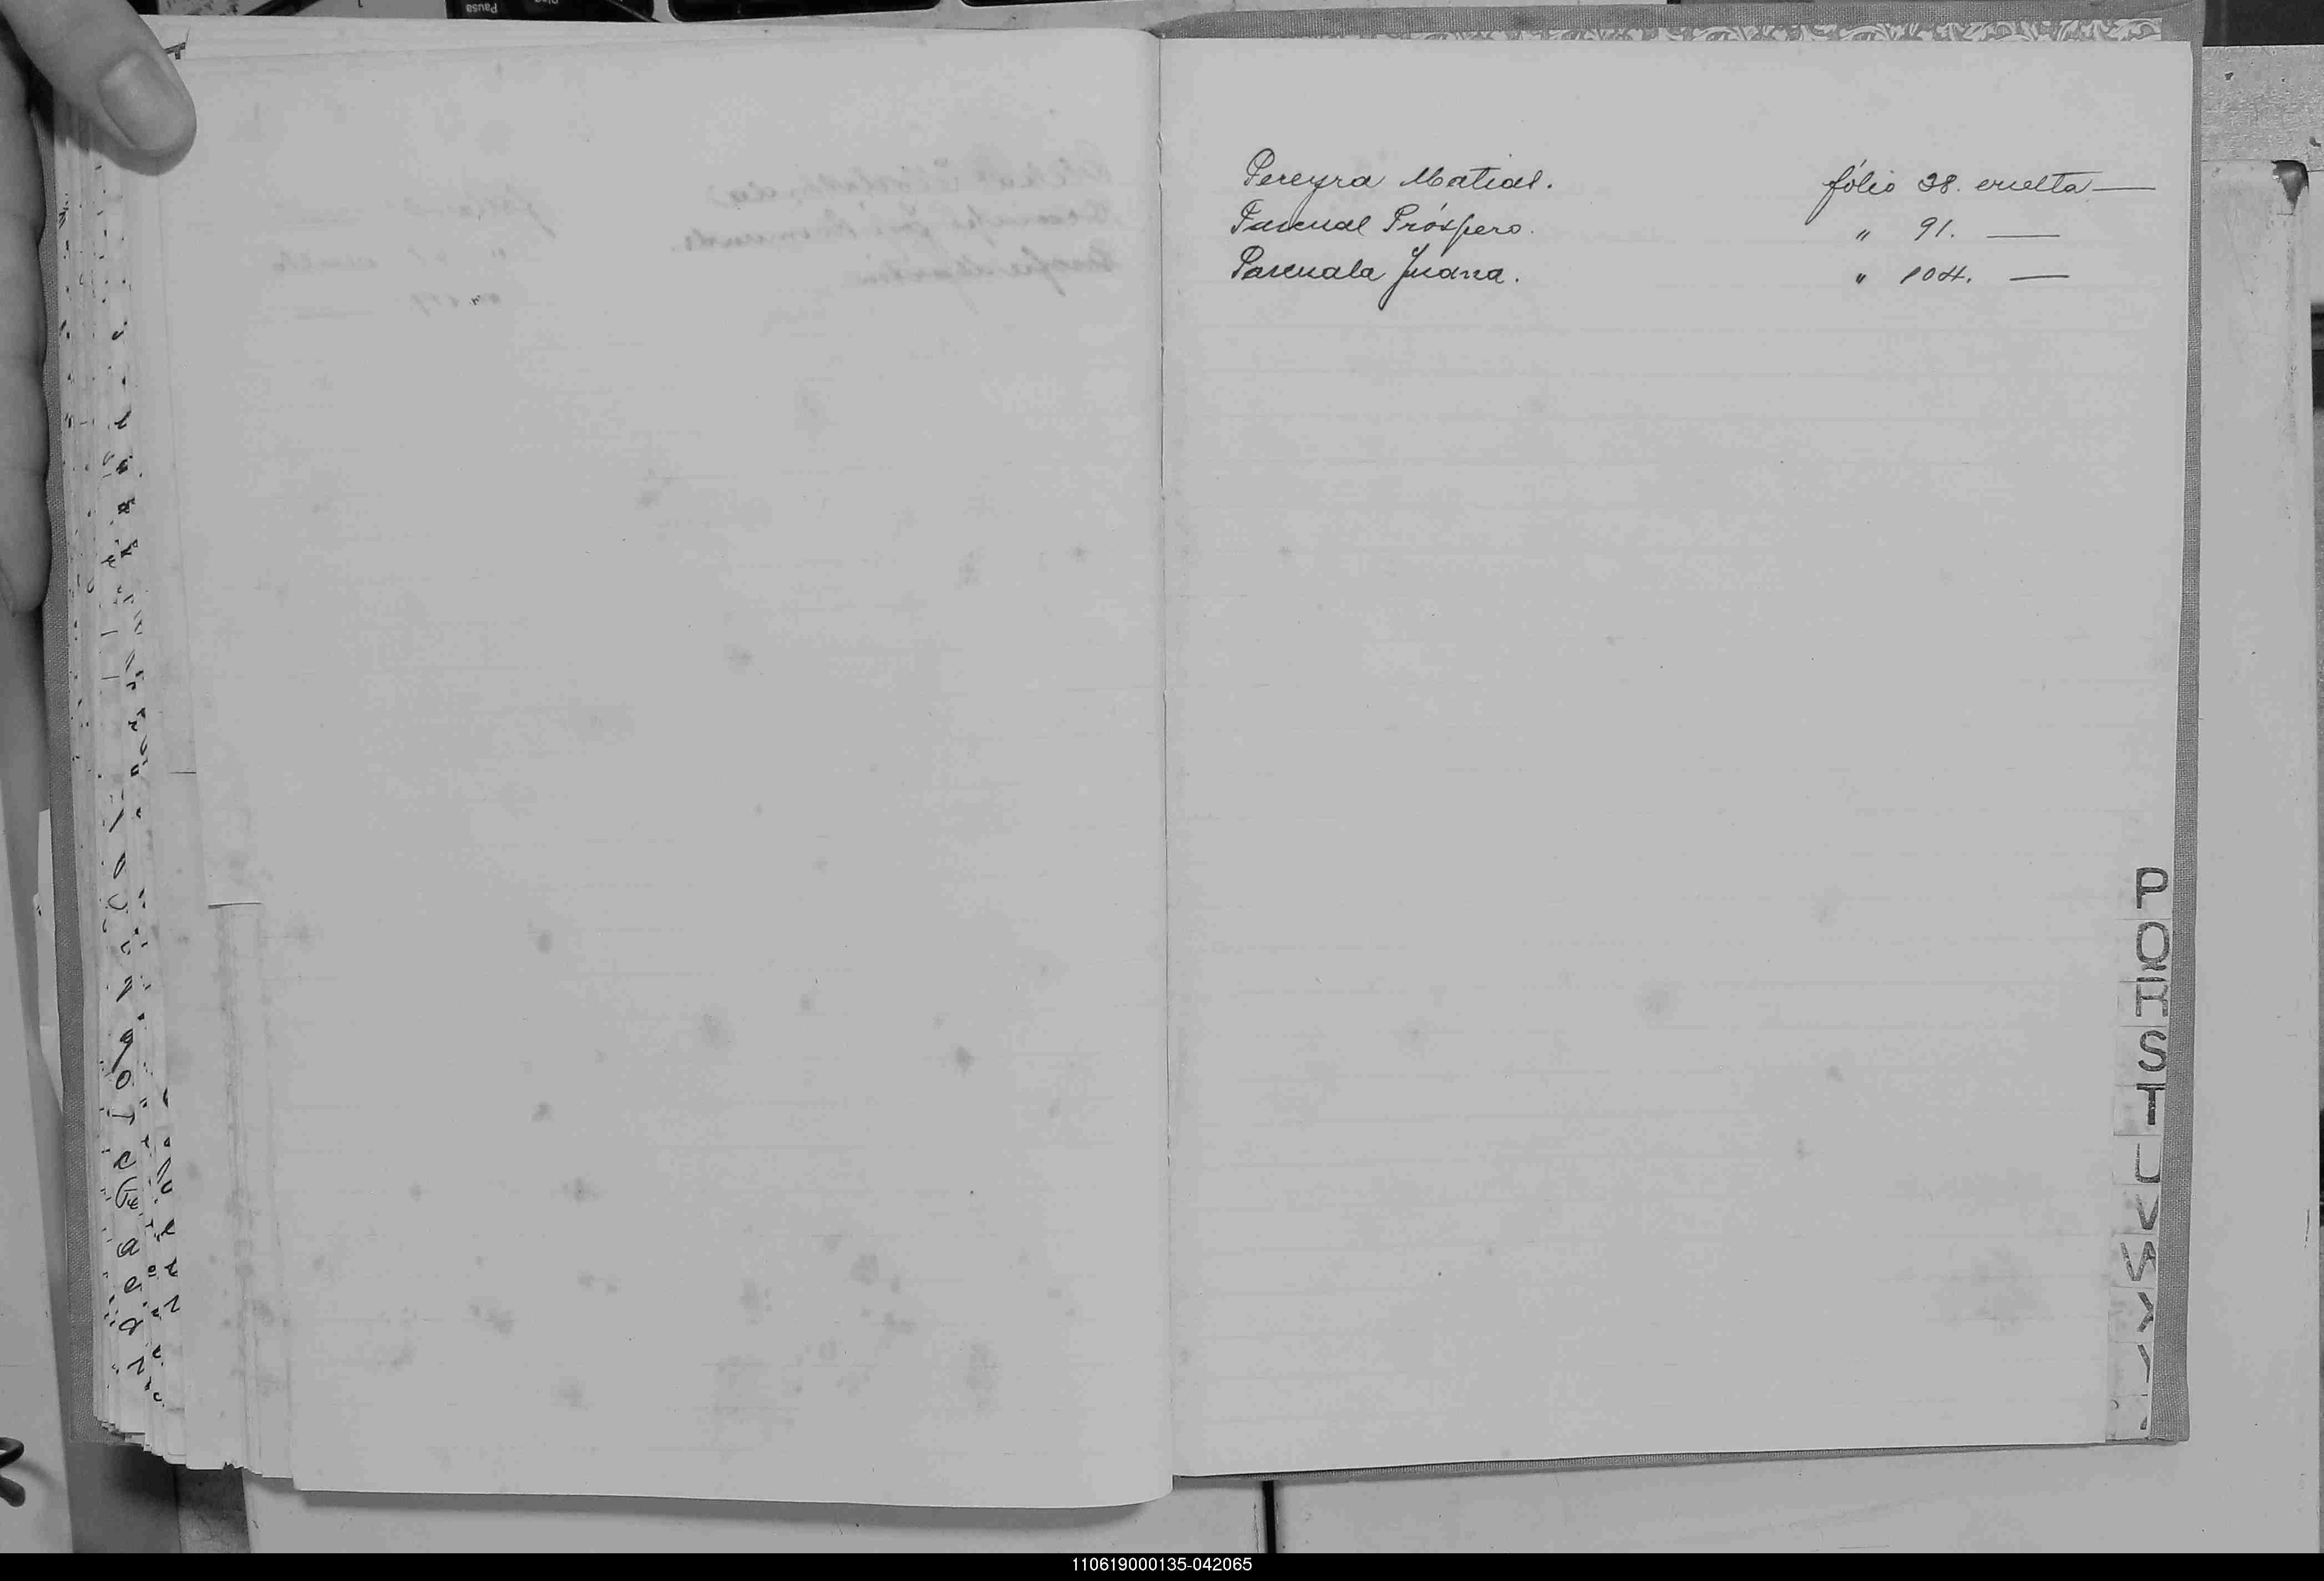 Pereyra Matias. fólio 28. vuelta —
Pascual Próspero. " 91. —
Pascuala Juana. " 104. —
P
Q
R
S
T
U
V
W
X
Y
Pausa
110619000135-042065